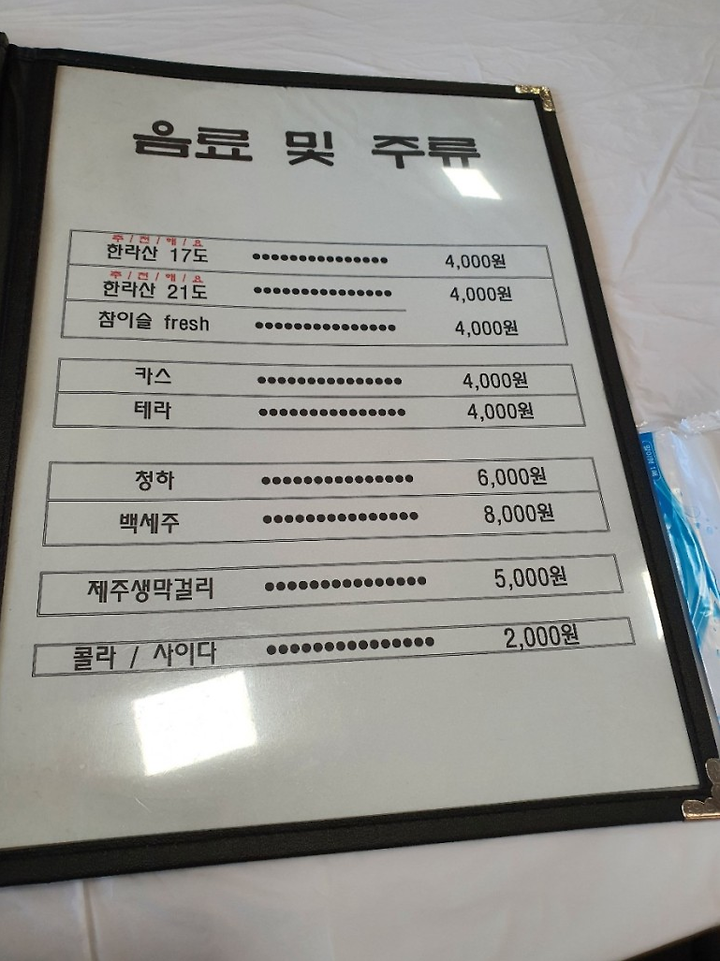 음료 및 주류
추/천/해/요
한라산 17도 ●●●●●●●●●●●●●●● 4,000원
추/천/해/요
한라산 21도 ●●●●●●●●●●●●●●● 4,000원
참이슬 fresh ●●●●●●●●●●●●●●● 4,000원
카스 ●●●●●●●●●●●●●●● 4,000원
테라 ●●●●●●●●●●●●●●● 4,000원
청하 ●●●●●●●●●●●●●●● 6,000원
백세주 ●●●●●●●●●●●●●●● 8,000원
제주생막걸리 ●●●●●●●●●●●●●●● 5,000원
콜라 / 사이다 ●●●●●●●●●●●●●●● 2,000원